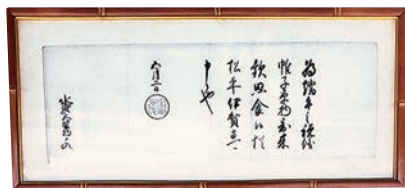 為端午之祝儀
帷子単物到来
歓思食候猶
松平伊賀守可
申也
五月